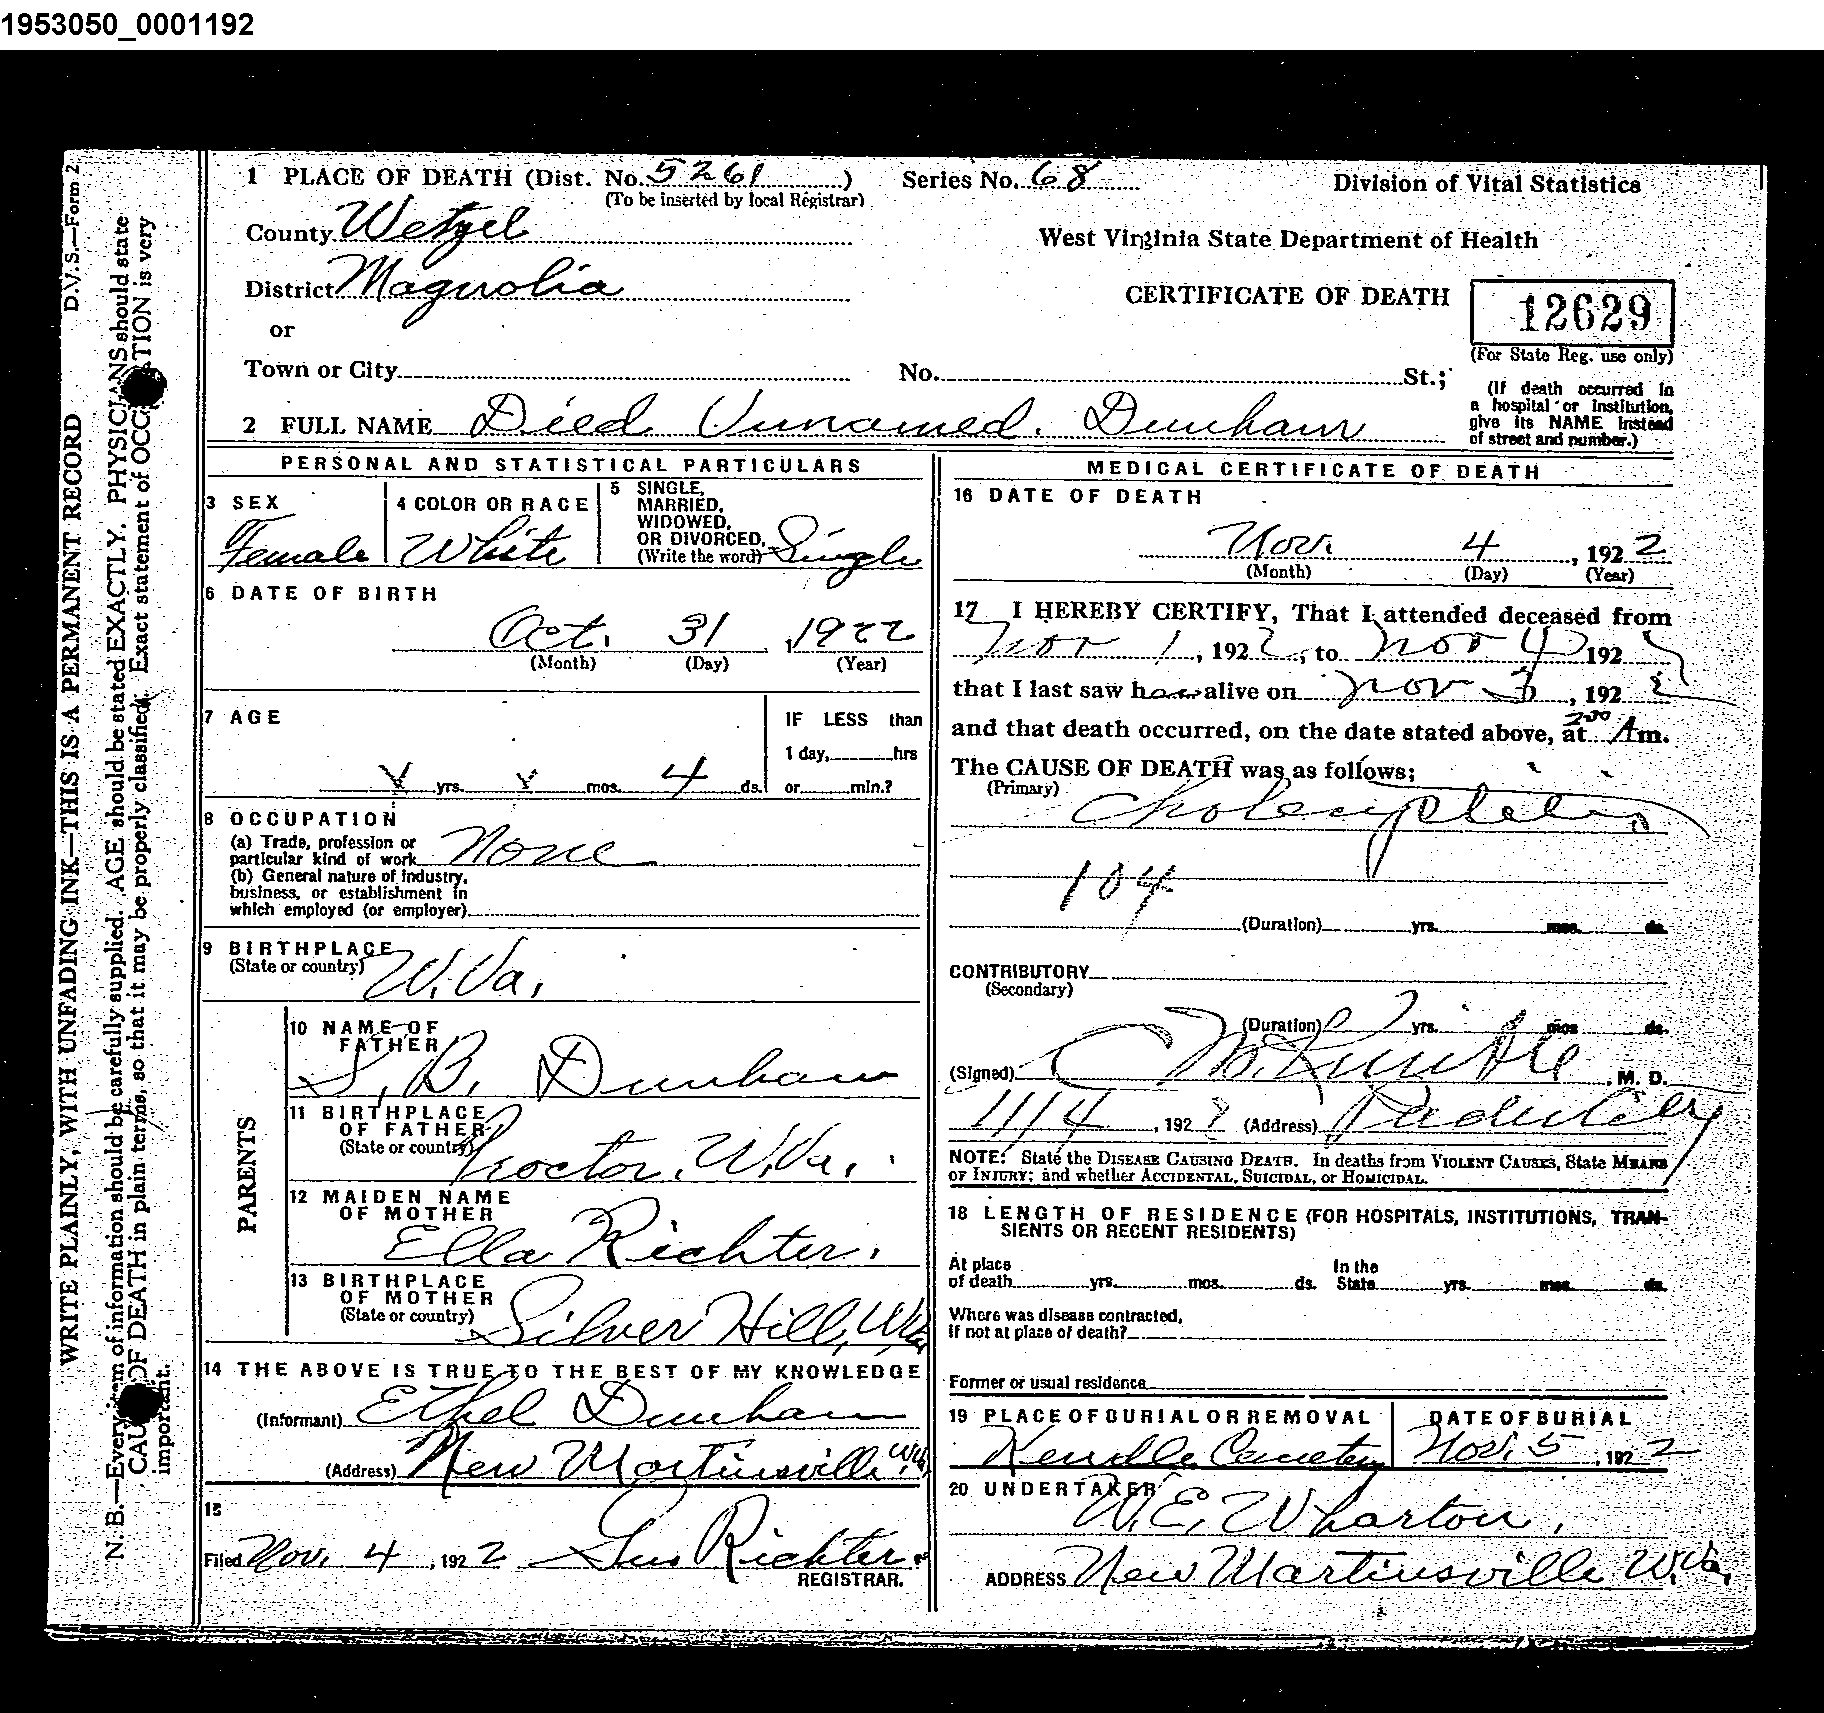 1953050_0001192
D.V.S.—Form 2
WRITE PLAINLY, WITH UNFADING INK—THIS IS A PERMANENT RECORD
N. B.—Every item of information should be carefully supplied. AGE should be stated EXACTLY. PHYSICIANS should state
CAUSE OF DEATH in plain terms, so that it may be properly classified. Exact statement of OCCUPATION is very
important.
1 PLACE OF DEATH (Dist. No. 5261) Series No. 68 Division of Vital Statistics
(To be inserted by local Registrar)
County Wetzel West Virginia State Department of Health
District Magnolia CERTIFICATE OF DEATH 12629
or (For State Reg. use only)
Town or City No. St.;
(If death occurred in
a hospital or institution,
give its NAME instead
of street and number.)
2 FULL NAME Died Unnamed. Dunham
PERSONAL AND STATISTICAL PARTICULARS
3 SEX
Female
4 COLOR OR RACE
White
5 SINGLE,
MARRIED,
WIDOWED,
OR DIVORCED,
(Write the word) Single
6 DATE OF BIRTH
Oct. 31, 1922
(Month) (Day) (Year)
7 AGE
yrs. mos. 4 ds.
IF LESS than
1 day, hrs
or min.?
8 OCCUPATION
(a) Trade, profession or
particular kind of work None
(b) General nature of industry,
business, or establishment in
which employed (or employer)
9 BIRTHPLACE
(State or country) W. Va.
PARENTS
10 NAME OF
FATHER
S. B. Dunham
11 BIRTHPLACE
OF FATHER
(State or country) Proctor, W. Va.
12 MAIDEN NAME
OF MOTHER
Ella Richter.
13 BIRTHPLACE
OF MOTHER
(State or country) Silver Hill, W. Va.
14 THE ABOVE IS TRUE TO THE BEST OF MY KNOWLEDGE
(Informant) Ethel Dunham
(Address) New Martinsville W. Va.
15
Filed Nov. 4, 1922 Gus Richter.
REGISTRAR.
MEDICAL CERTIFICATE OF DEATH
16 DATE OF DEATH
Nov. 4, 1922
(Month) (Day) (Year)
17 I HEREBY CERTIFY, That I attended deceased from
Nov 1, 1922, to Nov 4 192
that I last saw h alive on Nov 3, 1922
and that death occurred, on the date stated above, at 2:00 Am.
The CAUSE OF DEATH was as follows:
(Primary)
104
(Duration) yrs. mos. ds.
CONTRIBUTORY
(Secondary)
(Duration) yrs. mos ds.
(Signed) M. D.
11/4, 192 (Address) Paden City
NOTE: State the DISEASE CAUSING DEATH. In deaths from VIOLENT CAUSES, State MEANS
OF INJURY; and whether ACCIDENTAL, SUICIDAL, or HOMICIDAL.
18 LENGTH OF RESIDENCE (FOR HOSPITALS, INSTITUTIONS, TRAN-
SIENTS OR RECENT RESIDENTS)
At place In the
of death yrs. mos. ds. State yrs. mos. ds.
Where was disease contracted,
if not at place of death?
Former or usual residence
19 PLACE OF BURIAL OR REMOVAL
Kendle Cemetery
DATE OF BURIAL
Nov. 5, 1922
20 UNDERTAKER
W. E. Wharton,
ADDRESS New Martinsville W. Va.